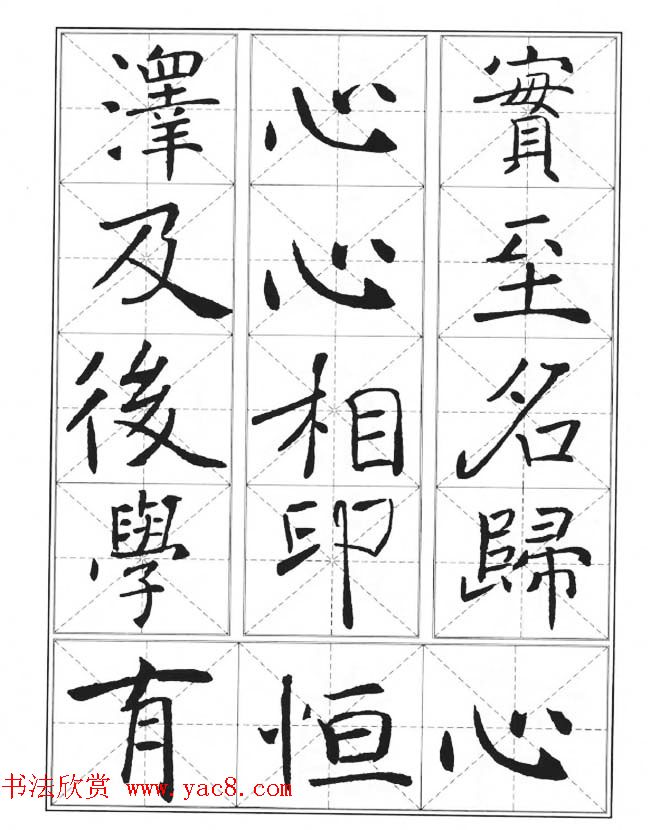 實至名歸
心心相印
澤及後學
有恒心
书法欣赏 www.yac8.com